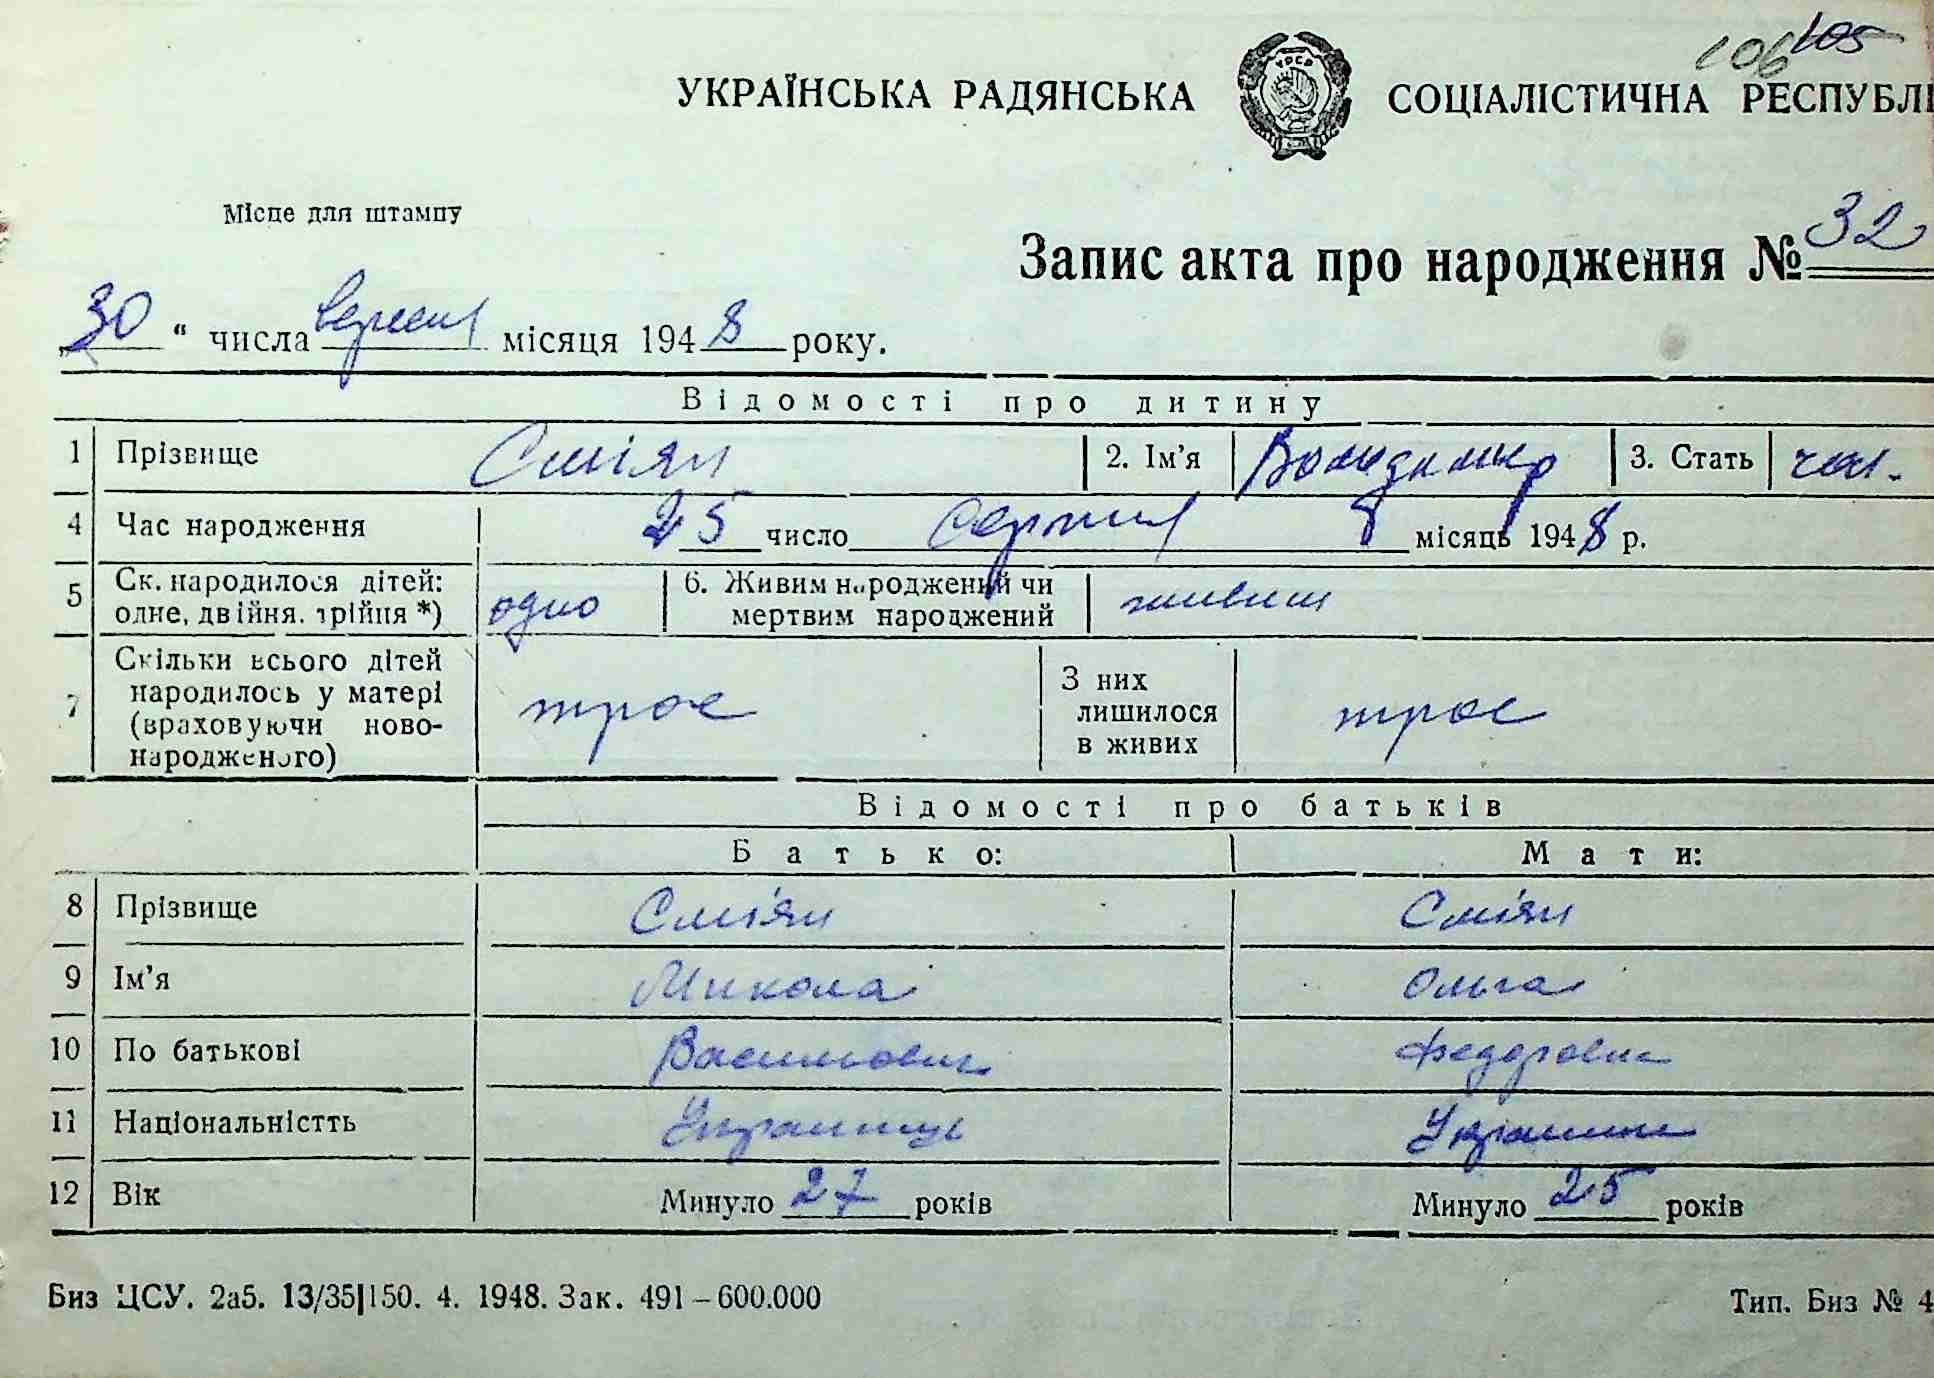 106 105
УКРАЇНСЬКА РАДЯНСЬКА СОЦІАЛІСТИЧНА РЕСПУБЛІ
УРСР
Місце для штампу
Запис акта про народження № 32
„30“ числа вересня місяця 1948 року.
Відомості про дитину
1 Прізвище Сміян 2. Ім'я Володимир 3. Стать чол.
4 Час народження 25 число Серпня 8 місяць 1948 р.
5 Ск. народилося дітей: одне, двійня. трійня *) одно 6. Живим народжений чи мертвим народжений живим
7 Скільки всього дітей народилось у матері (враховуючи новонародженого) троє З них лишилося в живих троє
Відомості про батьків
Батько: Мати:
8 Прізвище Сміян Сміян
9 Ім'я Микола Ольга
10 По батькові Василович Федоровна
11 Національністть Українець Українка
12 Вік Минуло 27 років Минуло 25 років
Биз ЦСУ. 2а5. 13/35|150. 4. 1948. Зак. 491–600.000 Тип. Биз № 4